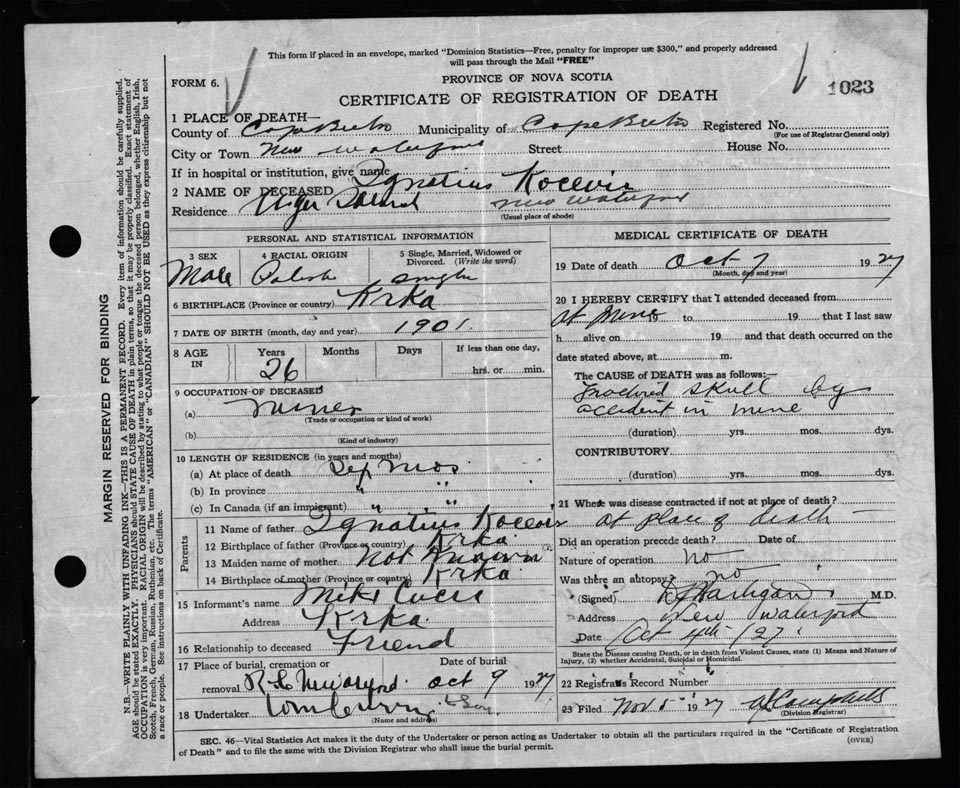 This form if placed in an envelope, marked "Dominion Statistics—Free, penalty for improper use $300," and properly addressed
will pass through the Mail "FREE"
FORM 6.
PROVINCE OF NOVA SCOTIA
1023
CERTIFICATE OF REGISTRATION OF DEATH
1 PLACE OF DEATH—
County of Cape Breton Municipality of Cape Breton Registered No.
(For use of Registrar General only)
City or Town New Waterford Street House No.
If in hospital or institution, give name
2 NAME OF DECEASED Ignatius Kocevis
Residence New Waterford
(Usual place of abode)
PERSONAL AND STATISTICAL INFORMATION
3 SEX 4 RACIAL ORIGIN 5 Single, Married, Widowed or Divorced. (Write the word)
Male Polish Single
6 BIRTHPLACE (Province or country) Krka
7 DATE OF BIRTH (month, day and year) 1901.
8 AGE IN Years Months Days If less than one day,
26 hrs. or min.
9 OCCUPATION OF DECEASED
(a) Miner
(Trade or occupation or kind of work)
(b)
(Kind of industry)
10 LENGTH OF RESIDENCE (in years and months)
(a) At place of death mos.
(b) In province " "
(c) In Canada (if an immigrant) " "
Parents
11 Name of father Ignatius Kocevis
12 Birthplace of father (Province or country) Krka.
13 Maiden name of mother Not Known
14 Birthplace of mother (Province or country) Krka
15 Informant's name Mike
Address Krka.
16 Relationship to deceased Friend
17 Place of burial, cremation or removal Date of burial
R.C. Oct 9 1927
18 Undertaker
(Name and address)
MEDICAL CERTIFICATE OF DEATH
19 Date of death Oct 7 1927
(Month, day and year)
20 I HEREBY CERTIFY that I attended deceased from
at Mine 19 to 19 that I last saw
h alive on 19 and that death occurred on the
date stated above, at m.
The CAUSE of DEATH was as follows:—
Fractured skull by
accident in mine
(duration) yrs. mos. dys.
CONTRIBUTORY
(duration) yrs. mos. dys.
21 Where was disease contracted if not at place of death?
at place of death
Did an operation precede death? Date of
Nature of operation no
Was there an autopsy? no
(Signed) Hartigan M.D.
Address New Waterford
Date Oct 4th/27
State the Disease causing Death, or in death from Violent Causes, state (1) Means and Nature of
Injury, (2) whether Accidental, Suicidal or Homicidal.
22 Registrar's Record Number
23 Filed Nov 5 1927 Campbell
(Division Registrar)
SEC. 46—Vital Statistics Act makes it the duty of the Undertaker or person acting as Undertaker to obtain all the particulars required in the "Certificate of Registration
of Death" and to file the same with the Division Registrar who shall issue the burial permit.
(OVER)
MARGIN RESERVED FOR BINDING
N.B.—WRITE PLAINLY WITH UNFADING INK—THIS IS A PERMANENT RECORD. Every item of information should be carefully supplied.
AGE should be stated EXACTLY. PHYSICIANS should STATE CAUSE OF DEATH in plain terms, so that it may be properly classified. Exact statement of
OCCUPATION is very important. RACIAL ORIGIN will be described by stating to what people or tongue the deceased person belonged, whether English, Irish,
Scotch, French, German, Russian, Ruthenian, etc. The terms "AMERICAN" or "CANADIAN" SHOULD NOT BE USED as they express citizenship but not
a race or people. See instructions on back of Certificate.